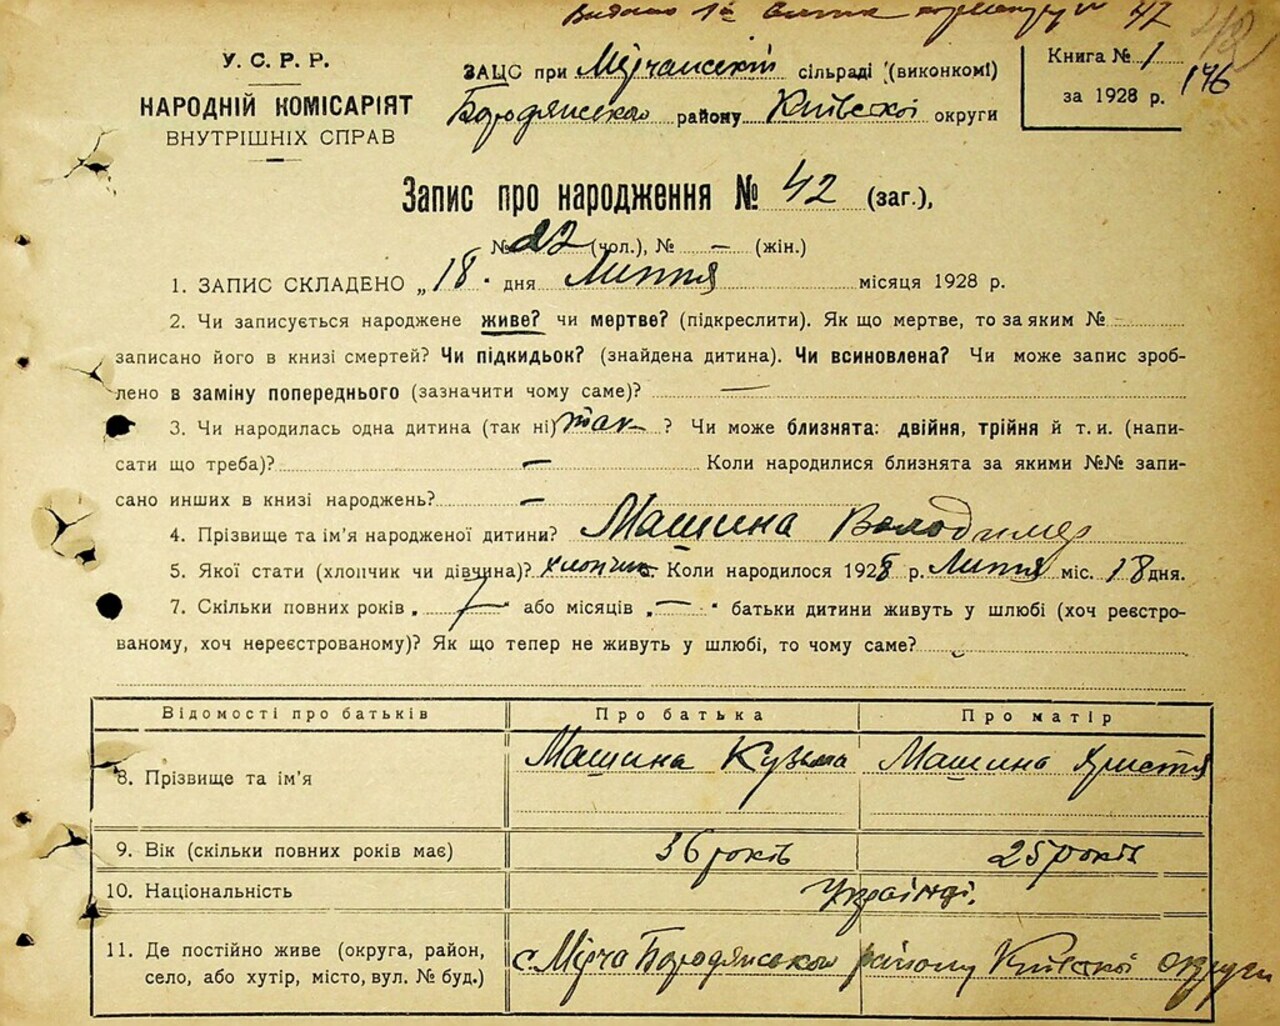 Видано 1й 47
У. С. Р. Р.
НАРОДНІЙ КОМІСАРІЯТ
ВНУТРІШНІХ СПРАВ
ЗАЦС при Мірчанській сільраді (виконкомі)
Бородянського району Київської округи
Книга № 1
за 1928 р.
146
Запис про народження № 42 (заг.),
№ 22 (чол.), № — (жін.)
1. ЗАПИС СКЛАДЕНО „18" дня Липня місяця 1928 р.
2. Чи записується народжене живе? чи мертве? (підкреслити). Як що мертве, то за яким № —
записано його в книзі смертей? Чи підкидьок? (знайдена дитина). Чи всиновлена? Чи може запис зроб-
лено в заміну попереднього (зазначити чому саме)? —
3. Чи народилась одна дитина (так ні) так ? Чи може близнята: двійня, трійня й т. и. (напи-
сати що треба)? — Коли народилися близнята за якими №№ запи-
сано инших в книзі народжень? —
4. Прізвище та ім'я народженої дитини? Машина Володимер
5. Якої стати (хлопчик чи дівчина)? хлопчик. Коли народилося 1928 р. Липня міс. 18 дня.
7. Скільки повних років „ 7 " або місяців „ — " батьки дитини живуть у шлюбі (хоч реєстро-
ваному, хоч нереєстрованому)? Як що тепер не живуть у шлюбі, то чому саме?
Відомості про батьків Про батька Про матір
8. Прізвище та ім'я Машина Кузьма Машина Христя
9. Вік (скільки повних років має) 36 років 25 років
10. Національність Українці.
11. Де постійно живе (округа, район,
село, або хутір, місто, вул. № буд.) с. Мірча Бородянського району Київської округи